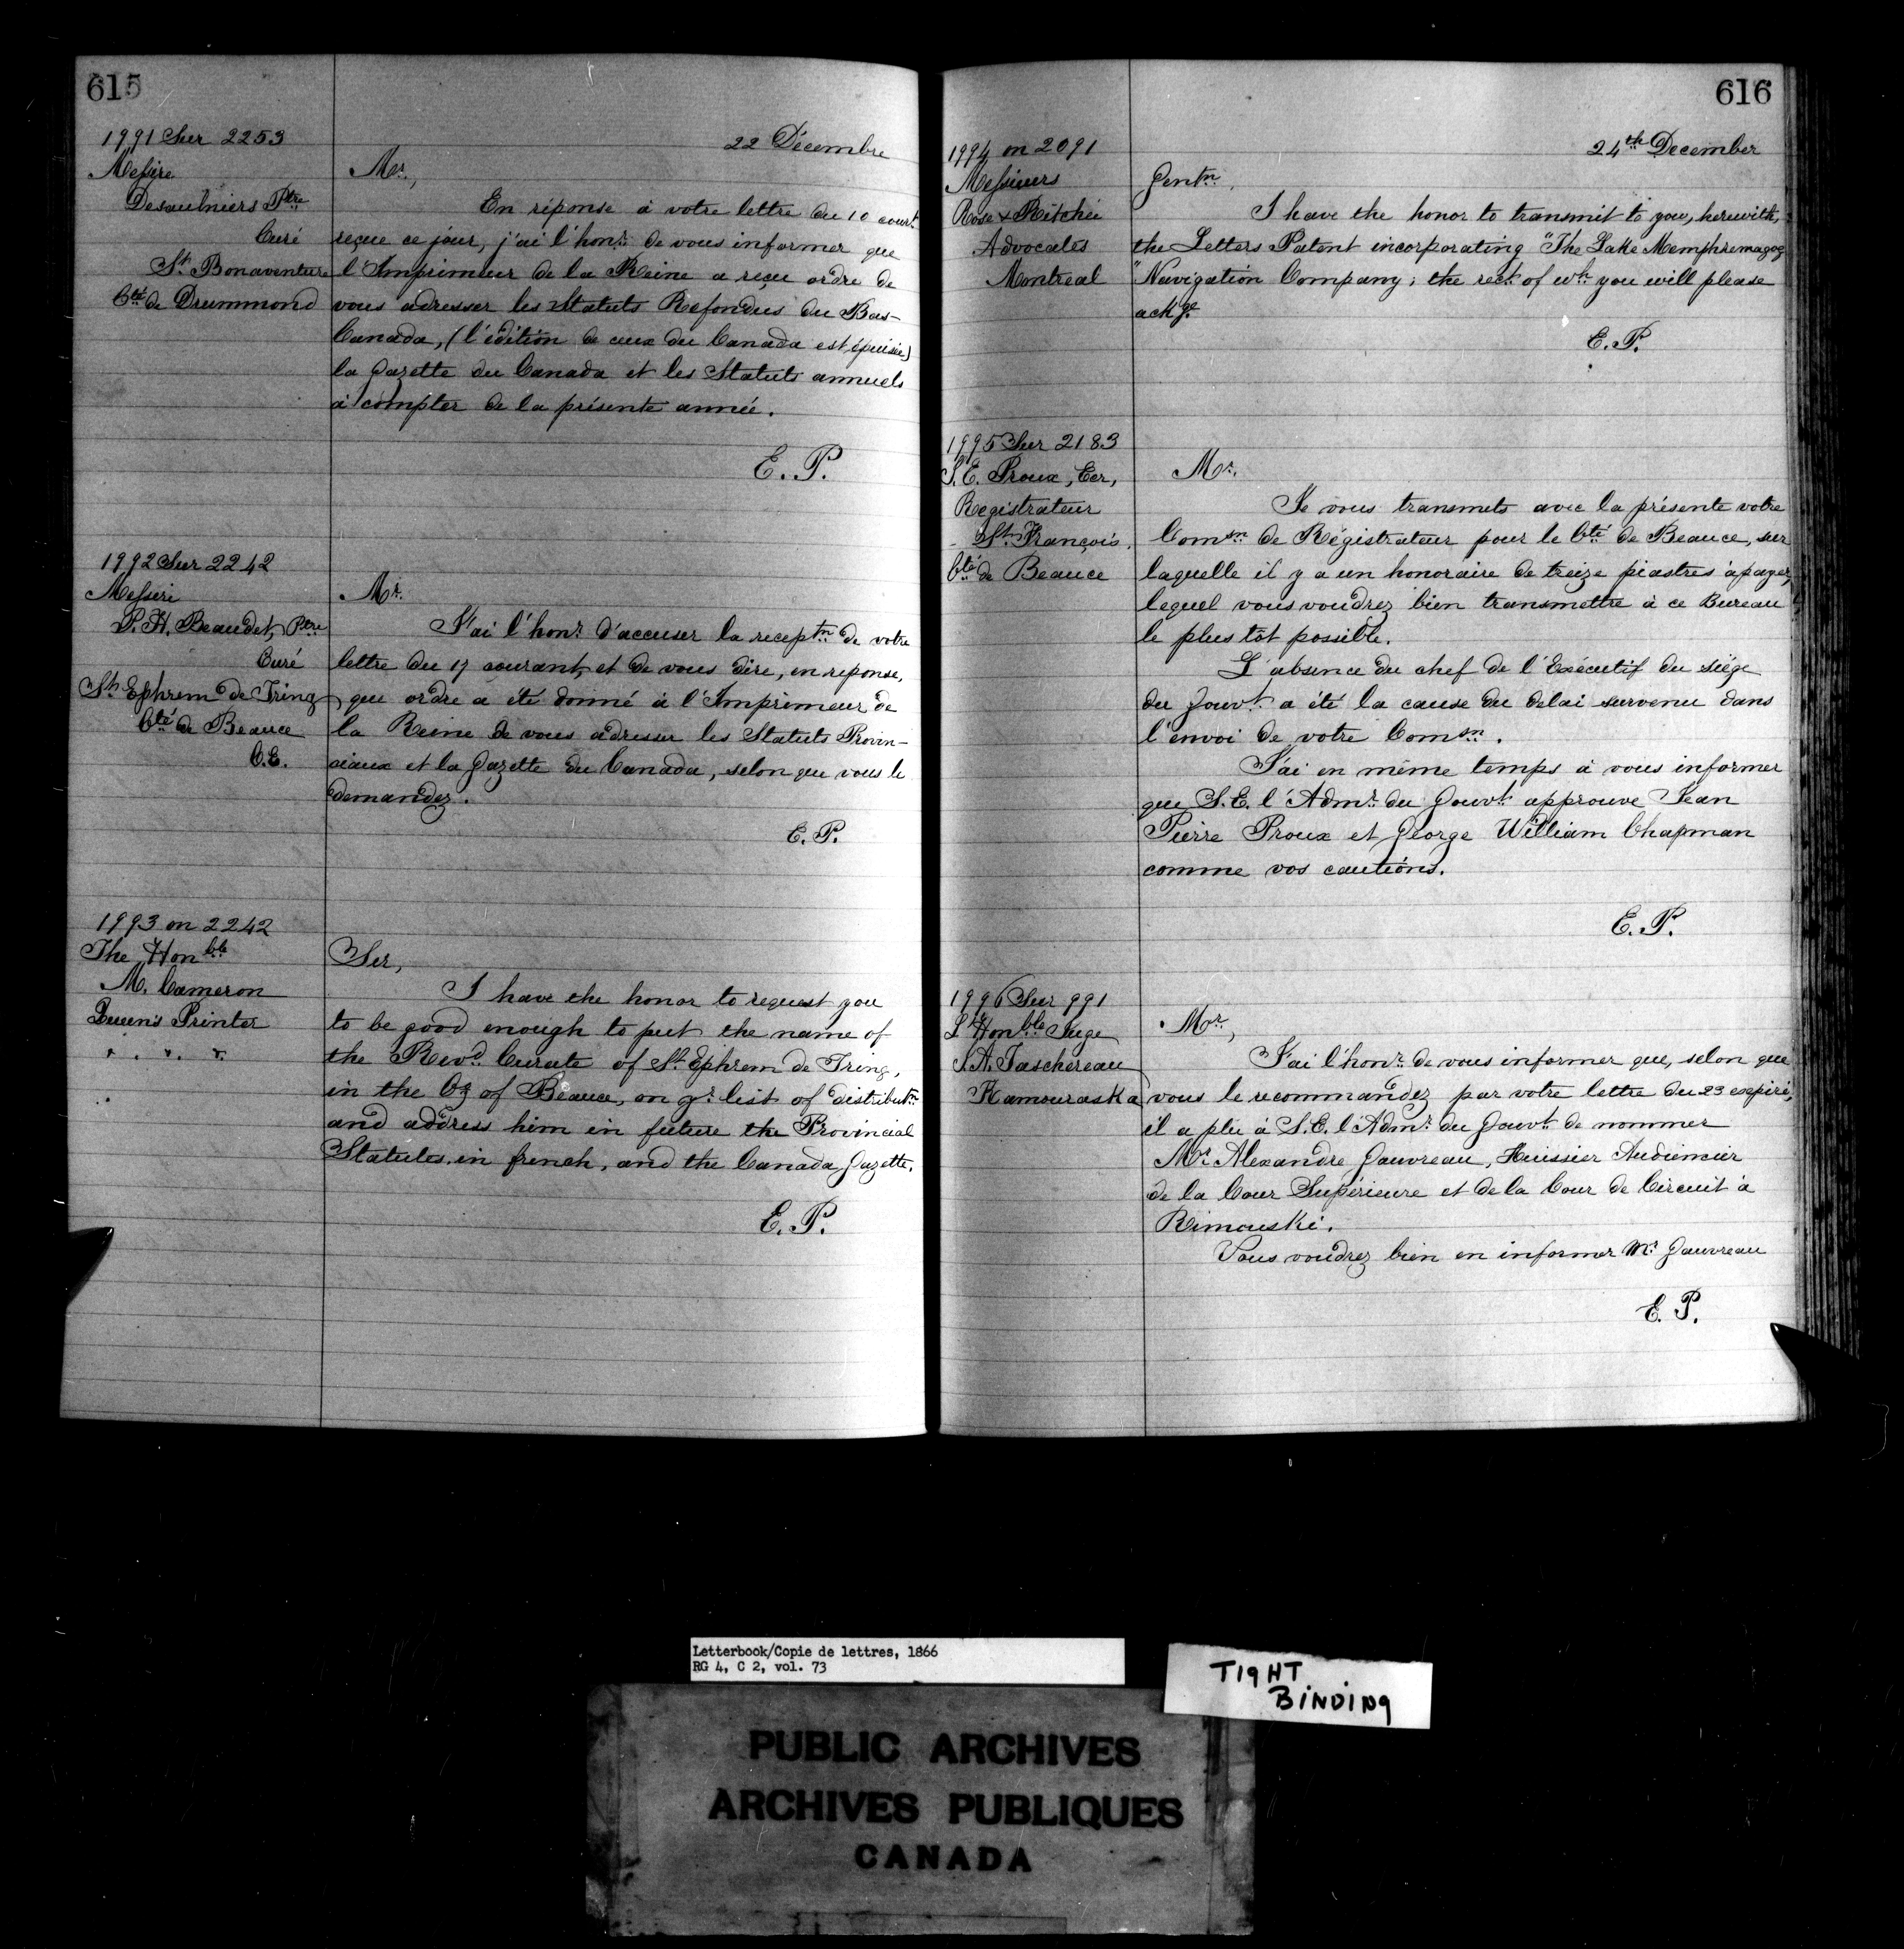 615
22 Décembre
1991 Sur 2253
Messire
Desaulniers Ptre
Curé
St. Bonaventure
Cté de Drummond
Mr.,
En réponse à votre lettre du 10 court
reçue ce jour, j'ai l'honr. de vous informer que
l'Imprimeur de la Reine a reçu ordre de
vous adresser les Statuts Refondus du Bas-
Canada, (l'édition de ceux du Canada est épuisée)
la Gazette du Canada et les Statuts annuels
à compter de la présente année.
E. P.
1992 Sur 2242
Messire
P. H. Beaudet, Ptre
Curé
St. Ephrem de Tring
Cté de Beauce
C.E.
Mr.
J'ai l'honr. d'accuser la receptn. de votre
lettre du 17 courant, et de vous dire, en reponse,
que ordre a été donné à l'Imprimeur de
la Reine de vous adresser les Statuts Provin-
ciaux et la Gazette du Canada, selon que vous le
demandez.
E. P.
1993 on 2242
The Honble
M. Cameron
Queen's Printer
Sir,
I have the honor to request you
to be good enough to put the name of
the Revd. Curate of St. Ephrem de Tring,
in the Cy of Beauce, on yr. list of distributn.
and address him in future the Provincial
Statutes in french, and the Canada Gazette.
E. P.
616
24th December
1994 on 2091
Messieurs
Rose & Ritchie
Advocates
Montreal
Gentn.
I have the honor to transmit to you, herewith,
the Letters Patent incorporating "The Lake Memphremagog
"Navigation Company; the rect. of wh. you will please
ackge.
E. P.
1995 Sur 2183
J. E. Proux, Ecr,
Registrateur
St. François
Cté de Beauce
Mr.
Je vous transmets avec la présente votre
Comsn. de Régistrateur pour le Cté de Beauce, sur
laquelle il y a un honoraire de treize piastres à payer,
lequel vous voudrez bien transmettre à ce Bureau
le plus tôt possible.
L'absence du chef de l'Exécutif du siége
du Gouvt. a été la cause du delai survenu dans
l'envoi de votre Comsn.
J'ai en même temps à vous informer
que S.E. l'Admr. du Gouvt. approuve Jean
Pierre Proux et George William Chapman
comme vos cautions.
E. P.
1996 Sur 991
L'Honble Juge
J. A. Taschereau
Kamouraska
Mr.,
J'ai l'honr. de vous informer que, selon que
vous le recommandez par votre lettre du 23 expiré,
il a plu à S.E. l'Admr. du Gouvt. de nommer
Mr. Alexandre Gauvreau, Huissier Audiencier
de la Cour Supérieure et de la Cour de Circuit à
Rimouski.
Vous voudrez bien en informer Mr. Gauvreau
E. P.
Letterbook/Copie de lettres, 1866
RG 4, C 2, vol. 73
TIGHT
BINDING
PUBLIC ARCHIVES
ARCHIVES PUBLIQUES
CANADA